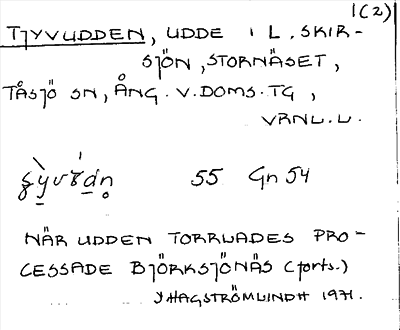 1(2)
TJYVUDDEN, UDDE I L. SKIR-
SJÖN, STORNÄSET,
TÅSJÖ SN, ÅNG. V. DOMS. TG,
VRNL. L.
55 Gn 54
NÄR UDDEN TORRLADES PRO-
CESSADE BJÖRKSJÖNÄS (forts.)
HAGSTRÖMLINDH 1971.